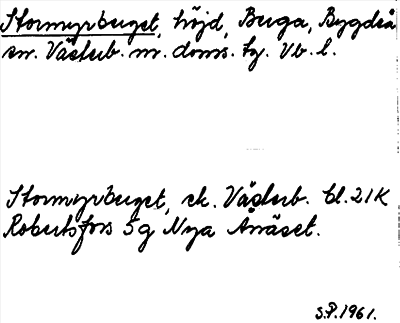 Stormyrberget, höjd, Buga, Bygdeå
sn. Västerb. m. doms. tg. Vb. l.
Stormyrberget, ek. Västerb. bl. 21K
Robertsfors 5g Nya Ånäset.
S.P. 1961.